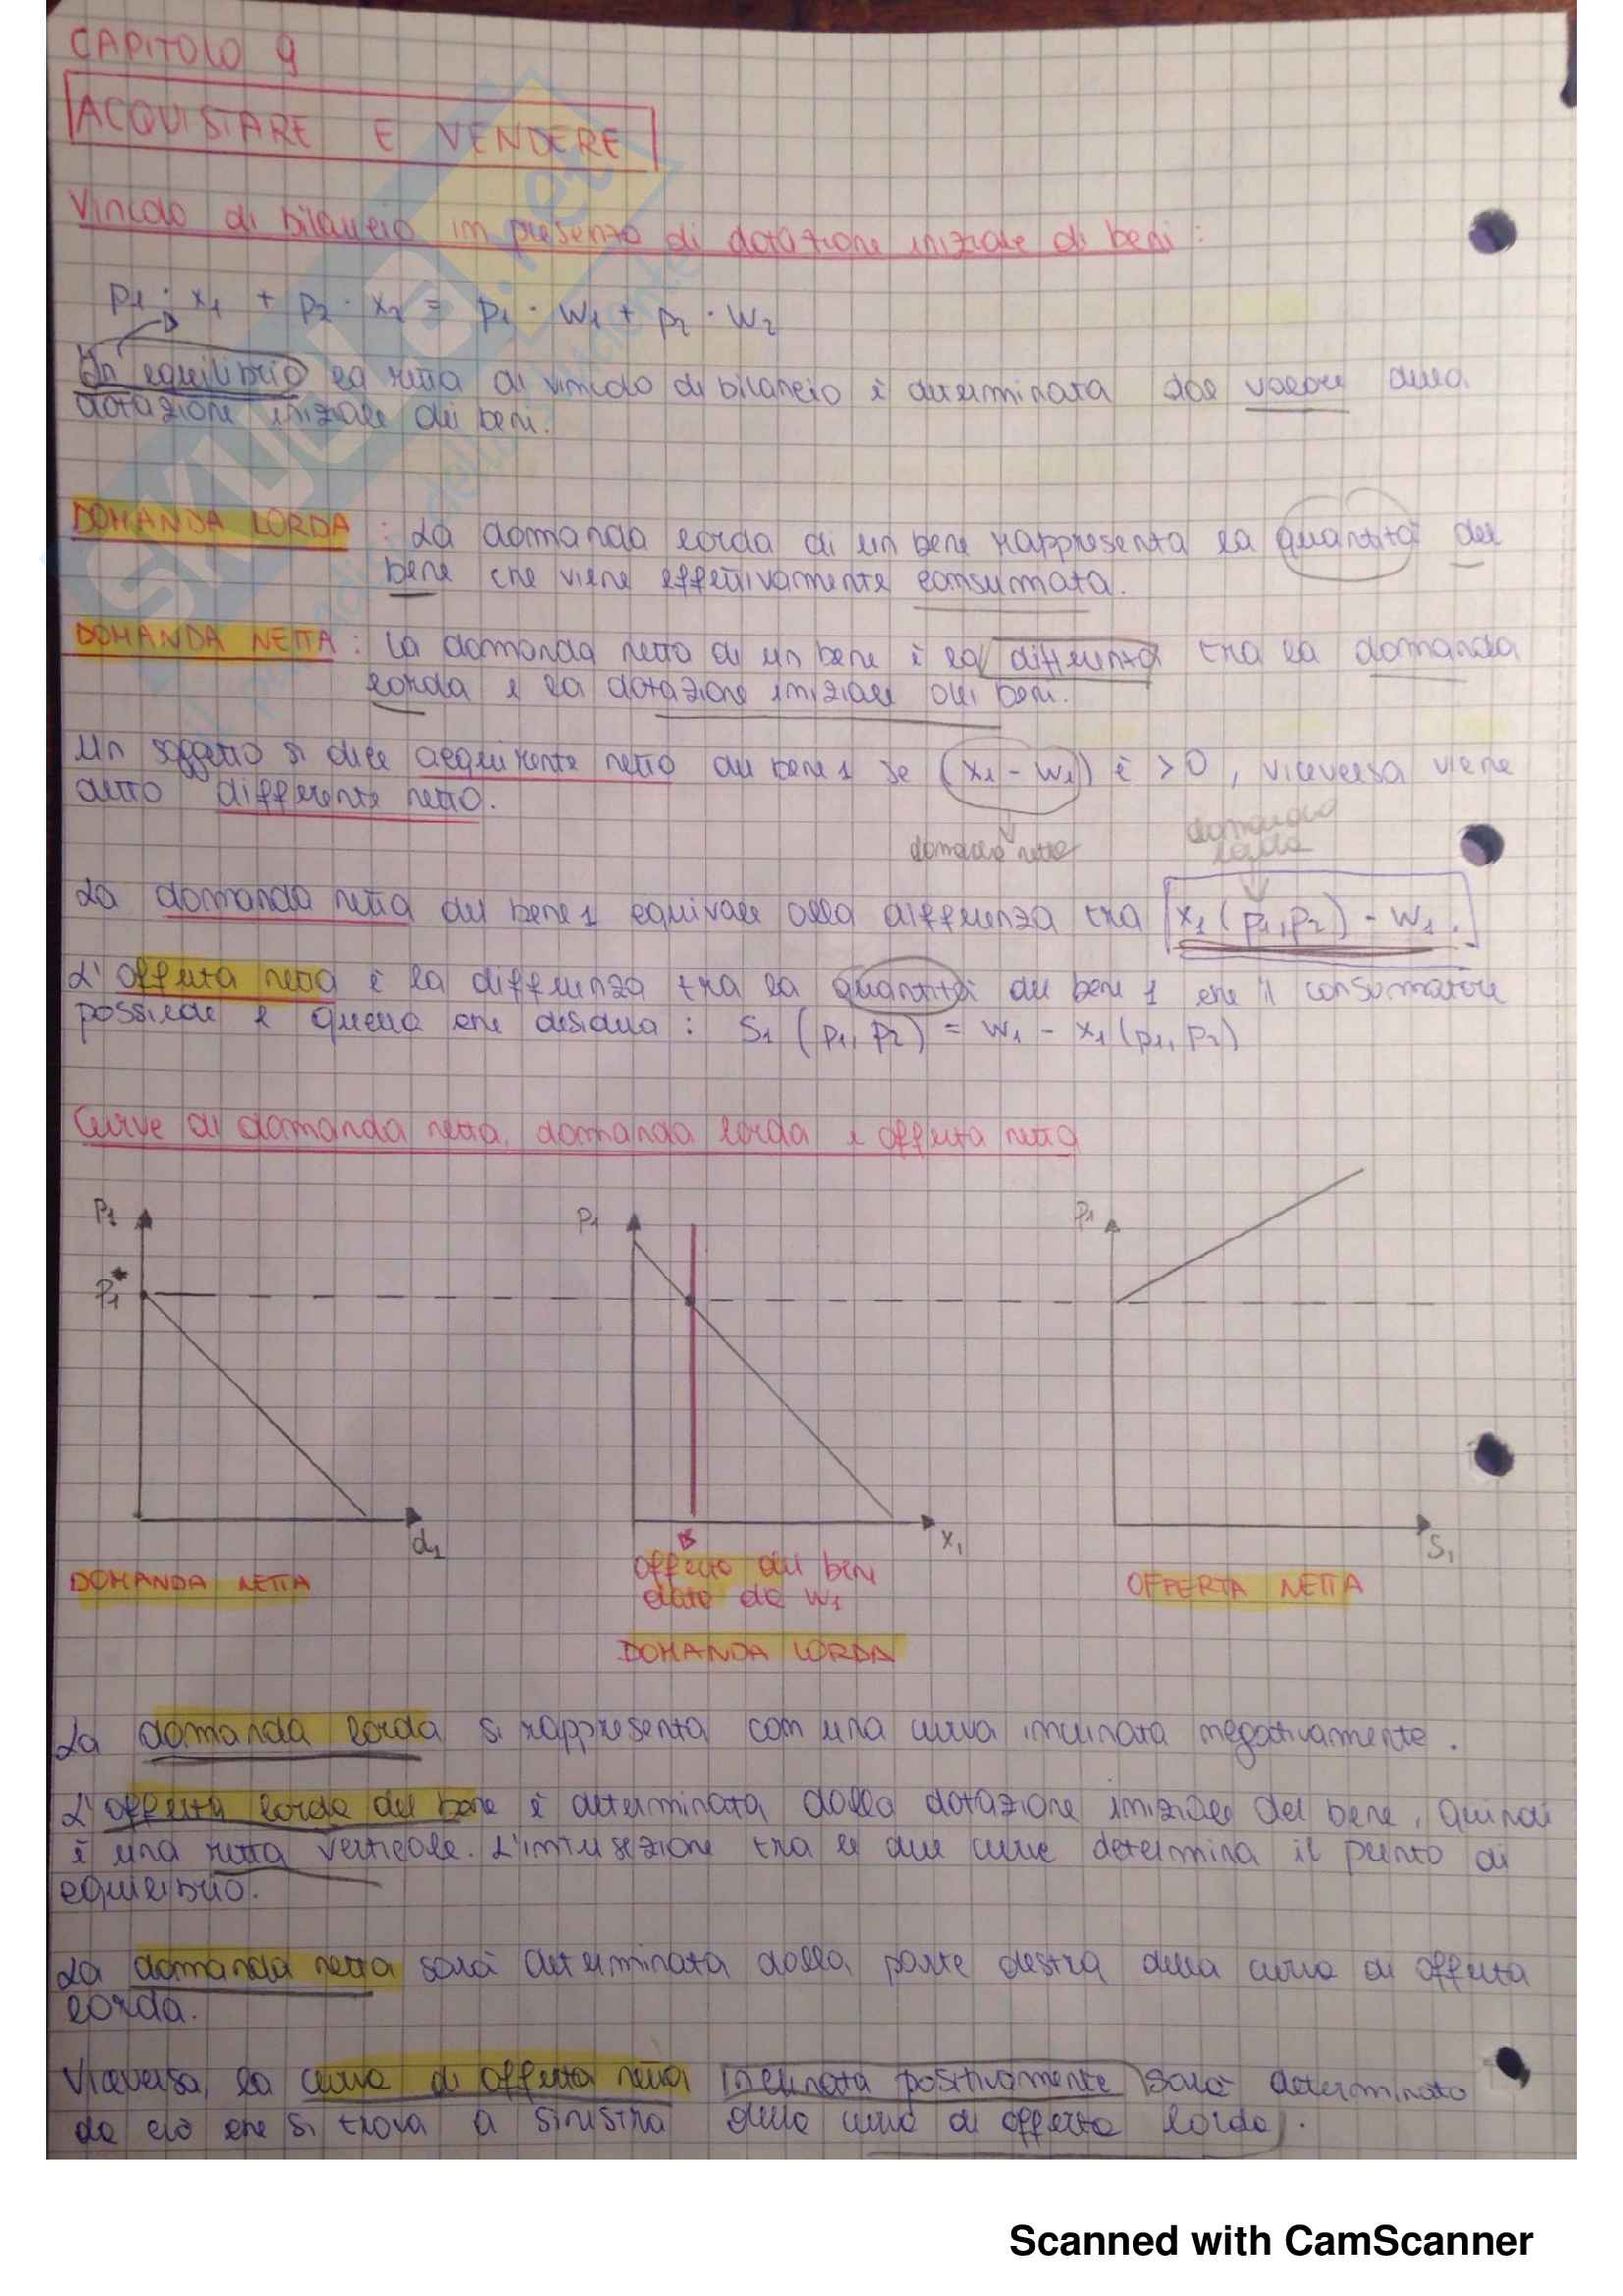 CAPITOLO 9
ACQUISTARE E VENDERE
Vincolo di bilancio in presenza di dotazione iniziale di beni:
p1 · x1 + p2 · x2 = p1 · w1 + p2 · w2
In equilibrio la retta di vincolo di bilancio è determinata dal valore della
dotazione iniziale dei beni.
DOMANDA LORDA : La domanda lorda di un bene rappresenta la quantità del
bene che viene effettivamente consumata.
DOMANDA NETTA : la domanda netta di un bene è la differenza tra la domanda
lorda e la dotazione iniziale dei beni.
Un soggetto si dice acquirente netto del bene 1 se (x1 - w1) è > 0, viceversa viene
detto differente netto.
domanda netta
domanda
lorda
La domanda netta del bene 1 equivale alla differenza tra x1 (p1,p2) - w1.
L'offerta netta è la differenza tra la quantità del bene 1 che il consumatore
possiede e quella che desidera : S1 (p1, p2) = w1 - x1 (p1, p2)
Curve di domanda netta, domanda lorda e offerta netta
P1
P1*
d1
DOMANDA NETTA
P1
x1
Offerta del bene
data da w1
DOMANDA LORDA
P1
S1
OFFERTA NETTA
La domanda lorda si rappresenta con una curva inclinata negativamente.
L'offerta lorda del bene è determinata dalla dotazione iniziale del bene, quindi
è una retta verticale. L'intersezione tra le due curve determina il punto di
equilibrio.
La domanda netta sarà determinata dalla parte destra della curva di offerta
lorda.
Viceversa, la curva di offerta netta inclinata positivamente sarà determinata
da ciò che si trova a sinistra della curva di offerta lorda.
Scanned with CamScanner